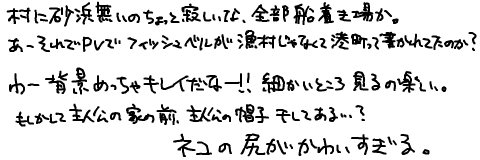 村に砂浜無いのちょっと寂しいな、全部船着き場か。
あーそれでPVでフィッシュベルが漁村じゃなくて港町って書かれてたのか?
わー背景めっちゃキレイだなー!!細かいところ見るの楽しい。
もしかして主人公の家の前、主人公の帽子干してある…?
ネコの尻がかわいすぎる。